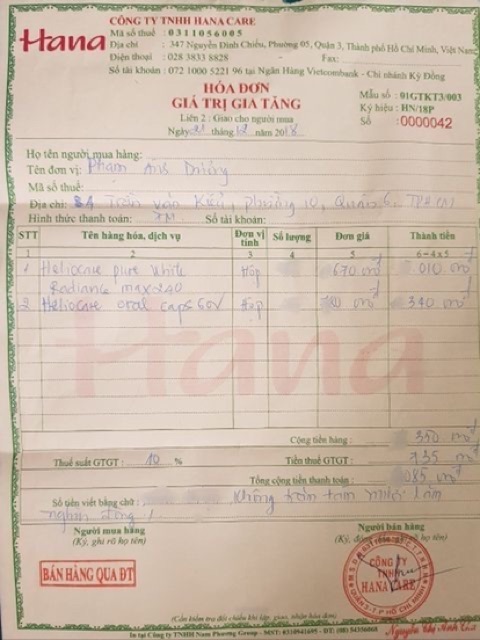 Hana
CÔNG TY TNHH HANA CARE
Mã số thuế : 0311056005
Địa chỉ : 347 Nguyễn Đình Chiểu, Phường 05, Quận 3, Thành phố Hồ Chí Minh, Việt Nam
Điện thoại : 028 3833 8828 - Fax:
Số tài khoản : 072 1000 5221 96 tại Ngân Hàng Vietcombank - Chi nhánh Kỳ Đồng
HÓA ĐƠN
GIÁ TRỊ GIA TĂNG
Liên 2 : Giao cho người mua
Ngày 21 tháng 12 năm 2018
Mẫu số : 01GTKT3/003
Ký hiệu : HN/18P
Số : 0000042
Họ tên người mua hàng:
Tên đơn vị: Phạm Ánh Dương
Mã số thuế:
Địa chỉ: Trần Văn Kiểu, Phường 10, Quận 6, TPHCM
Hình thức thanh toán: TM Số tài khoản:
STT Tên hàng hóa, dịch vụ Đơn vị tính Số lượng Đơn giá Thành tiền
1 2 3 4 5 6=4x5
1 Heliocare pure white Hộp 670 010
Radiance max 240
2 Heliocare oral caps 60v Hộp 340
Hana
Cộng tiền hàng : 350
Thuế suất GTGT : 10 % Tiền thuế GTGT : 735
Tổng cộng tiền thanh toán : 085
Số tiền viết bằng chữ : không trăm tám mươi lăm
nghìn đồng
Người mua hàng
(Ký, ghi rõ họ tên)
Người bán hàng
(Ký, đóng họ tên)
BÁN HÀNG QUA ĐT
CÔNG TY
TNHH
HANA CARE
QUẬN 3 - TP HỒ CHÍ MINH
(Cần kiểm tra đối chiếu khi lập, giao, nhận hóa đơn)
In tại Công ty TNHH Nam Phương Group - MST: 0310941695 - ĐT: (08) 54356068